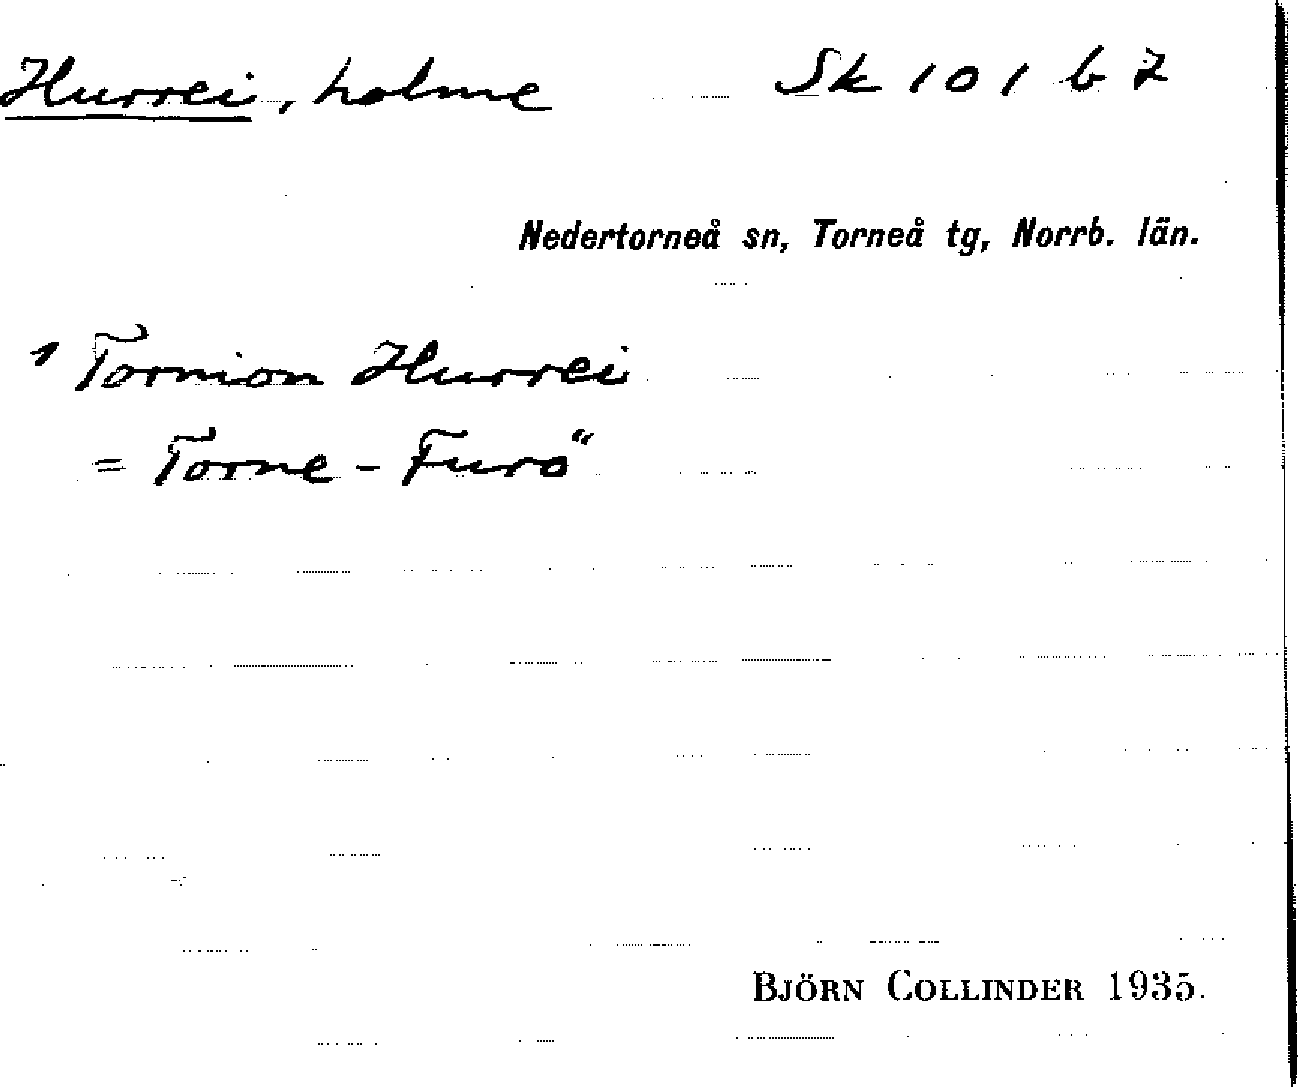 Hurrei, holme Sk 101 b 7
Nedertorneå sn, Torneå tg, Norrb. län.
1 Tornion Hurrei
= Torne-Furö
BJÖRN COLLINDER 1935.